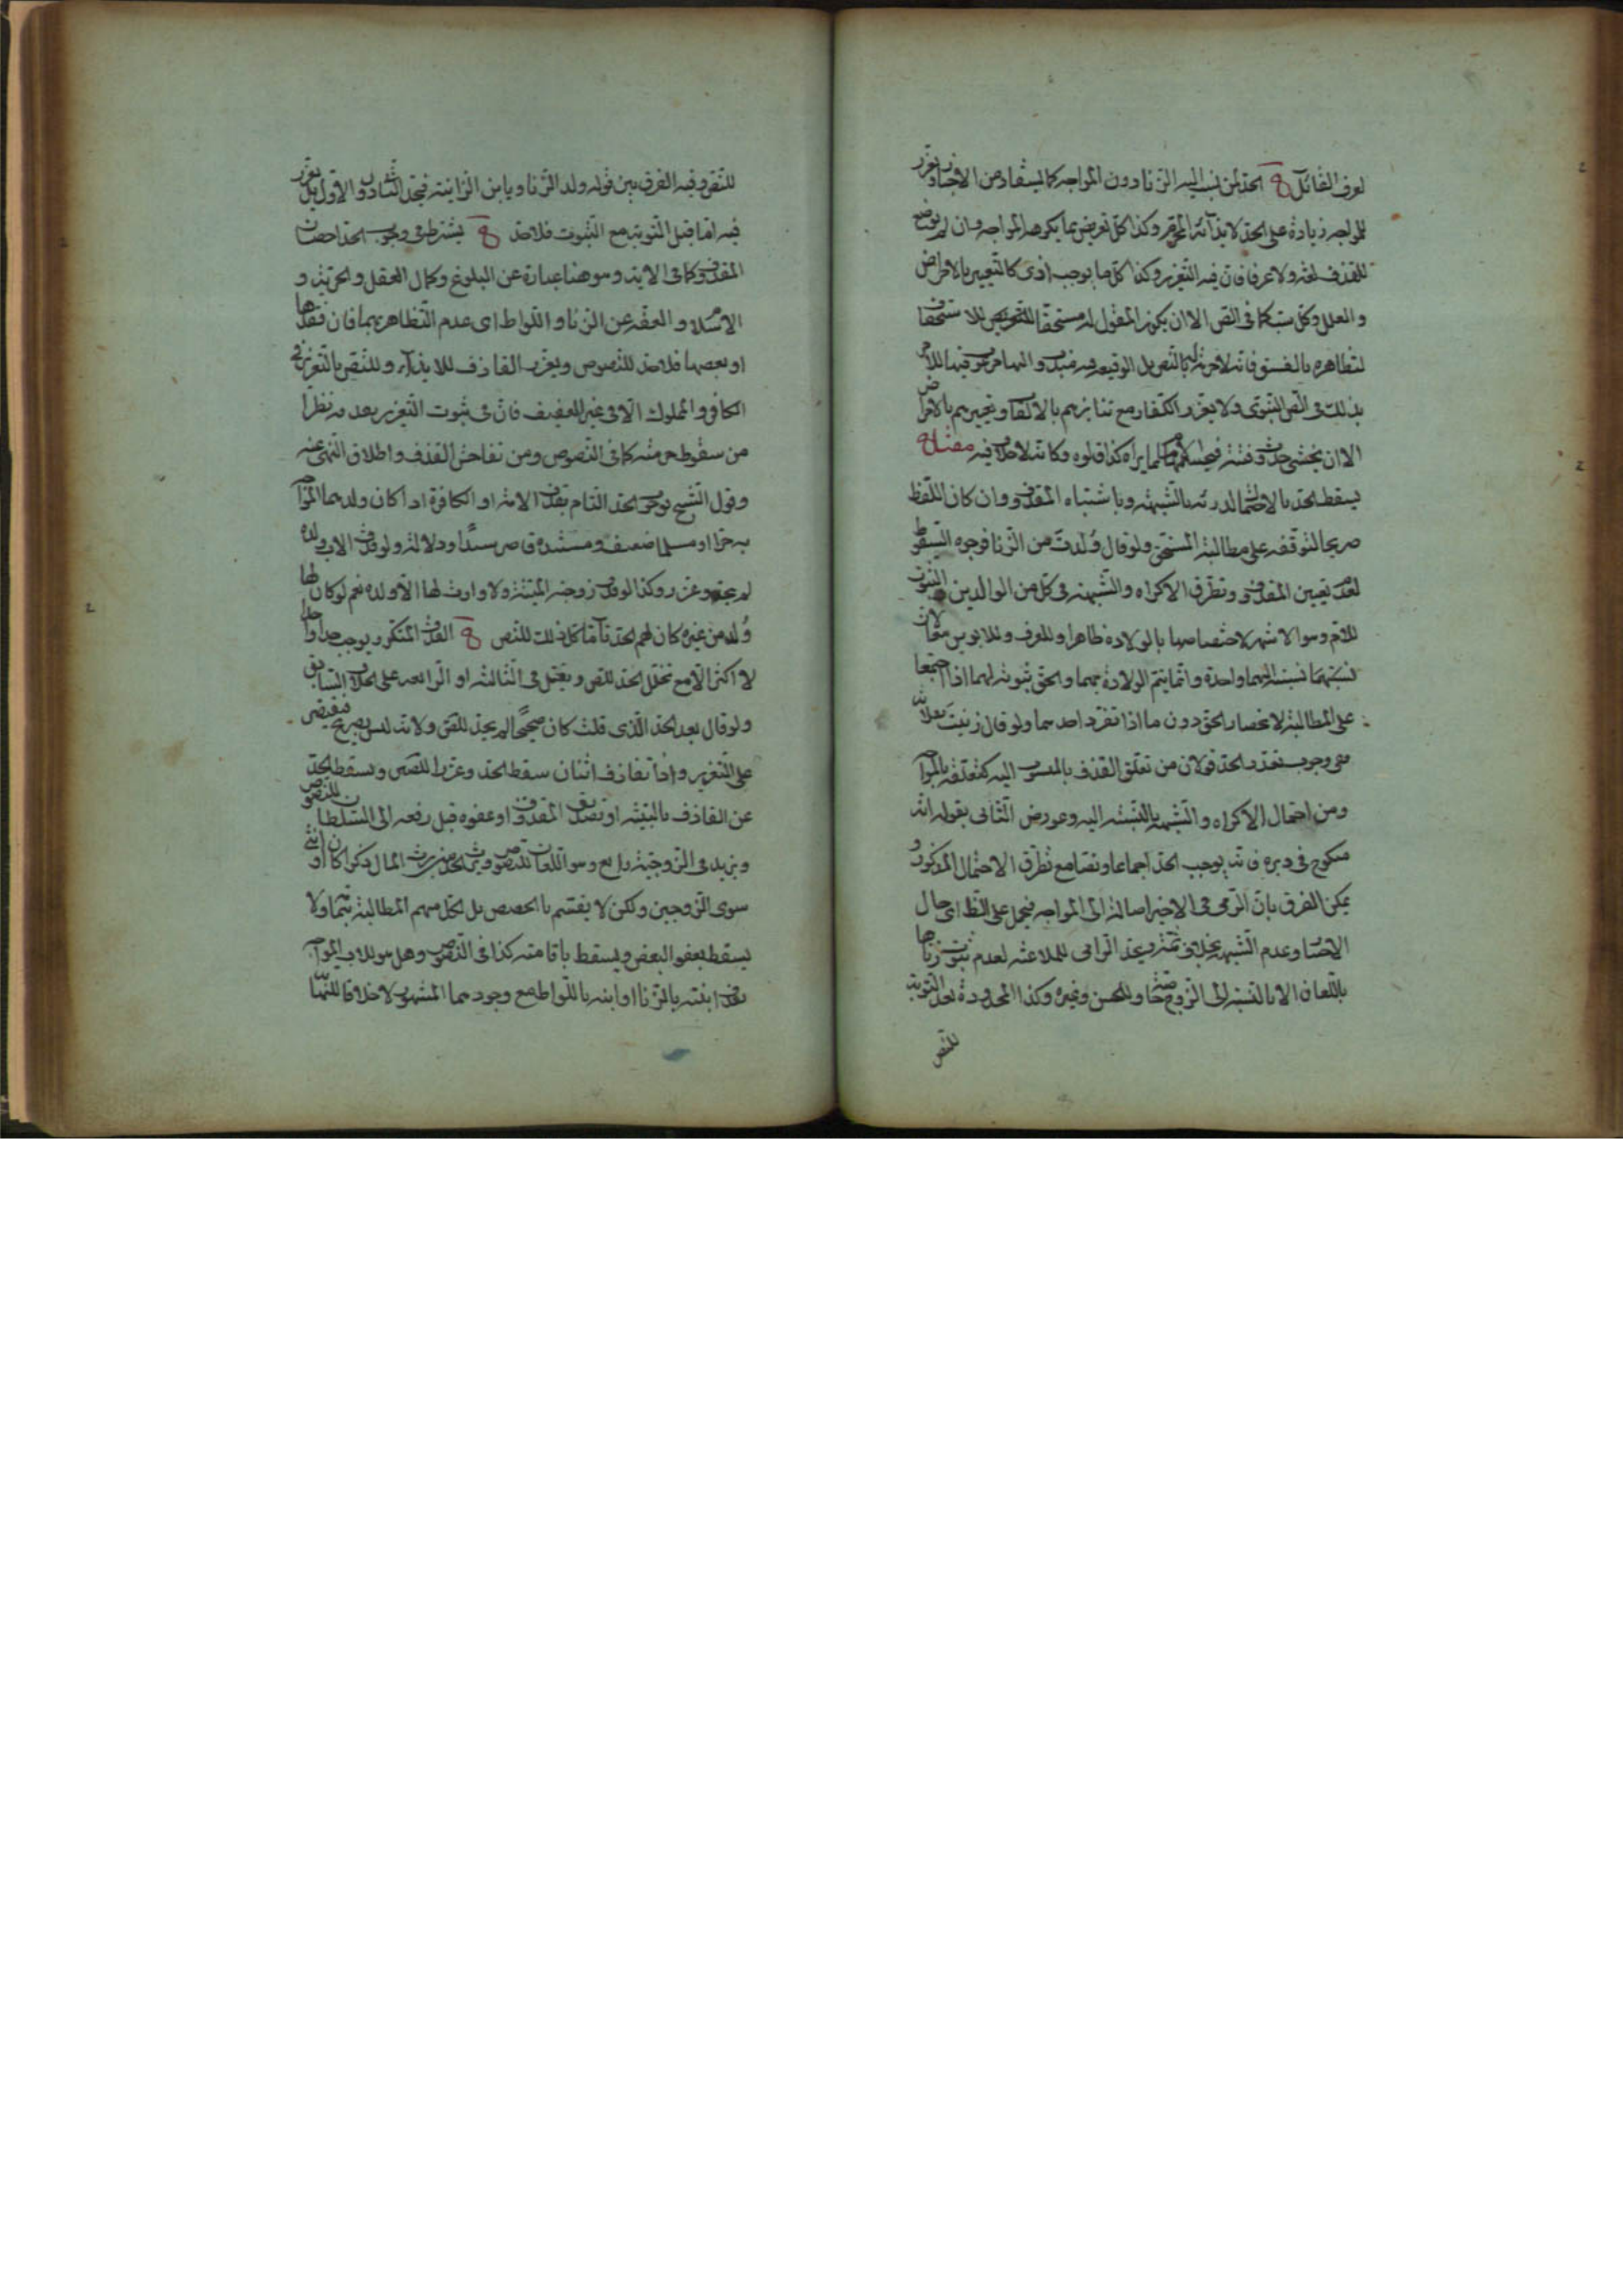 لعرف القائل والحد لمن نسب اليه الزنا دون المواجه كما يستفاد من الاخبار ويعزر
للمواجه زيادة على الحد لايذائه المحرم وكذا كل تعريض بما يكرهه المواجه وان لم يوضع
للقذف لغة ولا عرفا فان فيه التعزير وكذا كل ما يوجب اذى كالتعيير بالامراض
و العلل وكل سب كما فى النص الا ان يكون المقول له مستحقا للاستخفاف
لتظاهره بالفسق فانه لا حرمة له بالنص بل الوقيعة فيه
بذلك فى النص النبوى ولا يعزر الكفار مع تنابزهم بالالقاب وتعييرهم بالامراض
الا ان يخشى حدوث فتنة فيحسمها بما يراه كذا قالوه وكانه لا خلاف فيه مفتاح
يسقط الحد بالاحتمال لدرئه بالشبهة وباشتباه المقذوف وان كان اللفظ
صريحا لتوقفه على مطالبة المستحق ولو قال وُلدتَ من الزنا فوجوه السقوط
لعدم تعيين المقذوف وتطرق الاكراه والشبهة فى كل من الوالدين والثبوت
للام وهو الاشهر لاختصاصها بالولادة ظاهرا وللعرف وللابوين معا لان
نسبتهما نسبته اليهما واحدة وانما يتم الولادة بهما والحق ثبوته لهما اذا اجتمعا
على المطالبة لانحصار الحق دون ما اذا تفرد احدهما ولو قال زنيت بفلانة
ففى وجوب تعدد الحد قولان من تعلق القذف بالمنسوب اليه كتعلقه بالمواجه
ومن احتمال الاكراه والشبهة بالنسبة اليه وعورض الثانى بقوله انه
منكوح فى دبره فانه يوجب الحد اجماعا ونصا مع تطرق الاحتمال المذكور و
يمكن الفرق بان الرمى فى الاخير اصالة الى المواجه فيحمل على الظاهر اى حال
الاختيار وعدم الشبهة بخلاف ثمة ويحد الرامى للملاعنة لعدم ثبوت زناها
باللعان الا بالنسبة الى الزوج وللحسن وغيره وكذا المحدودة بعد التوبة
للنص
للنص وفيه الفرق بين قوله ولد الزنا ويا بن الزانية فيحد الثانى دون الاول بل يعزر
فيه اما قبل التوبة مع الثبوت فلا حد ويشترط فى وجوب الحد احصان
المقذوف كما فى الاية وهو هنا عبارة عن البلوغ وكمال العقل والحرية و
الاسلام والعفة عن الزنا و اللواط اى عدم التظاهر بهما فان فقدها
او بعضها فلا حد للنصوص ويعزر القاذف للايذاء وللنص بالتعزير فى
الكافر والمملوك الا فى غير العفيف فان فى ثبوت التعزير بقذفه نظرا
من سقوط حرمته كما فى النصوص ومن تفاحش القذف واطلاق النهى عنه
وقول الشيخ بوجوب الحد التام بقذف الامة او الكافرة اذا كان ولدهما المواجه
به حرا او مسلما ضعيف ومستنده قاصر سندًا ودلالة ولو قذف الاب ولده
لم يحد وعزر وكذا لو قذف زوجته الميتة ولا وارث لها الا ولده نعم لو كان لها
وُلد من غيره كان لهم الحد تاما كل ذلك للنص والقذف المتكرر يوجب حدا واحدا
لا اكثر الا مع تخلل الحد للنص ويقتل فى الثالثة او الرابعة على الخلاف السابق
ولو قال بعد الحد الذى قلت كان صحيحًا لم يحد للنص ولانه ليس بصريح فيقتصر
على التعزير واذا تقاذف اثنان سقط الحد وعزرا للنص ويسقط الحد
عن القاذف بالبينة او تصديق المقذوف او عفوه قبل رفعه الى السلطان للنصوص
ويزيد فى الزوجية رابع وهو اللعان للنصوص ويرث الحد من يرث المال ذكرا كان او انثى
سوى الزوجين ولكن لا يقتسم بالحصص بل لكل منهم المطالبة بتمامه ولا
يسقط بعفو البعض ويسقط باقامته كذا فى النصوص وهل هو للاب المواجه
بقذف ابنته بالزنا او ابنه باللواط مع وجودهما المشهور لا خلافا للنهاية